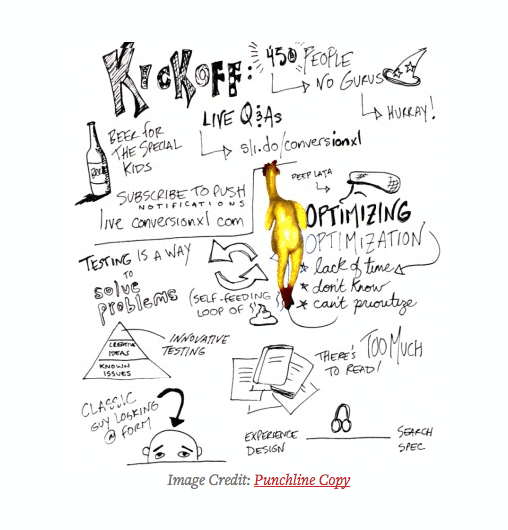 KICKOFF:
450 PEOPLE
NO GURUS
HURRAY!
LIVE Q&As
sli.do/conversionxl
BEER FOR
THE SPECIAL
KIDS
SUBSCRIBE TO PUSH
NOTIFICATIONS
live conversionxl com
OPTIMIZING
OPTIMIZATION
* lack of time
* don't know
* can't prioritize
TESTING IS A WAY
TO
solve
problems
(SELF-FEEDING
LOOP OF
CREATIVE
IDEAS
KNOWN
ISSUES
INNOVATIVE
TESTING
THERE'S TOO MUCH
TO READ!
CLASSIC
GUY LOOKING
@ FORM
EXPERIENCE
DESIGN
SEARCH
SPEC
Image Credit: Punchline Copy